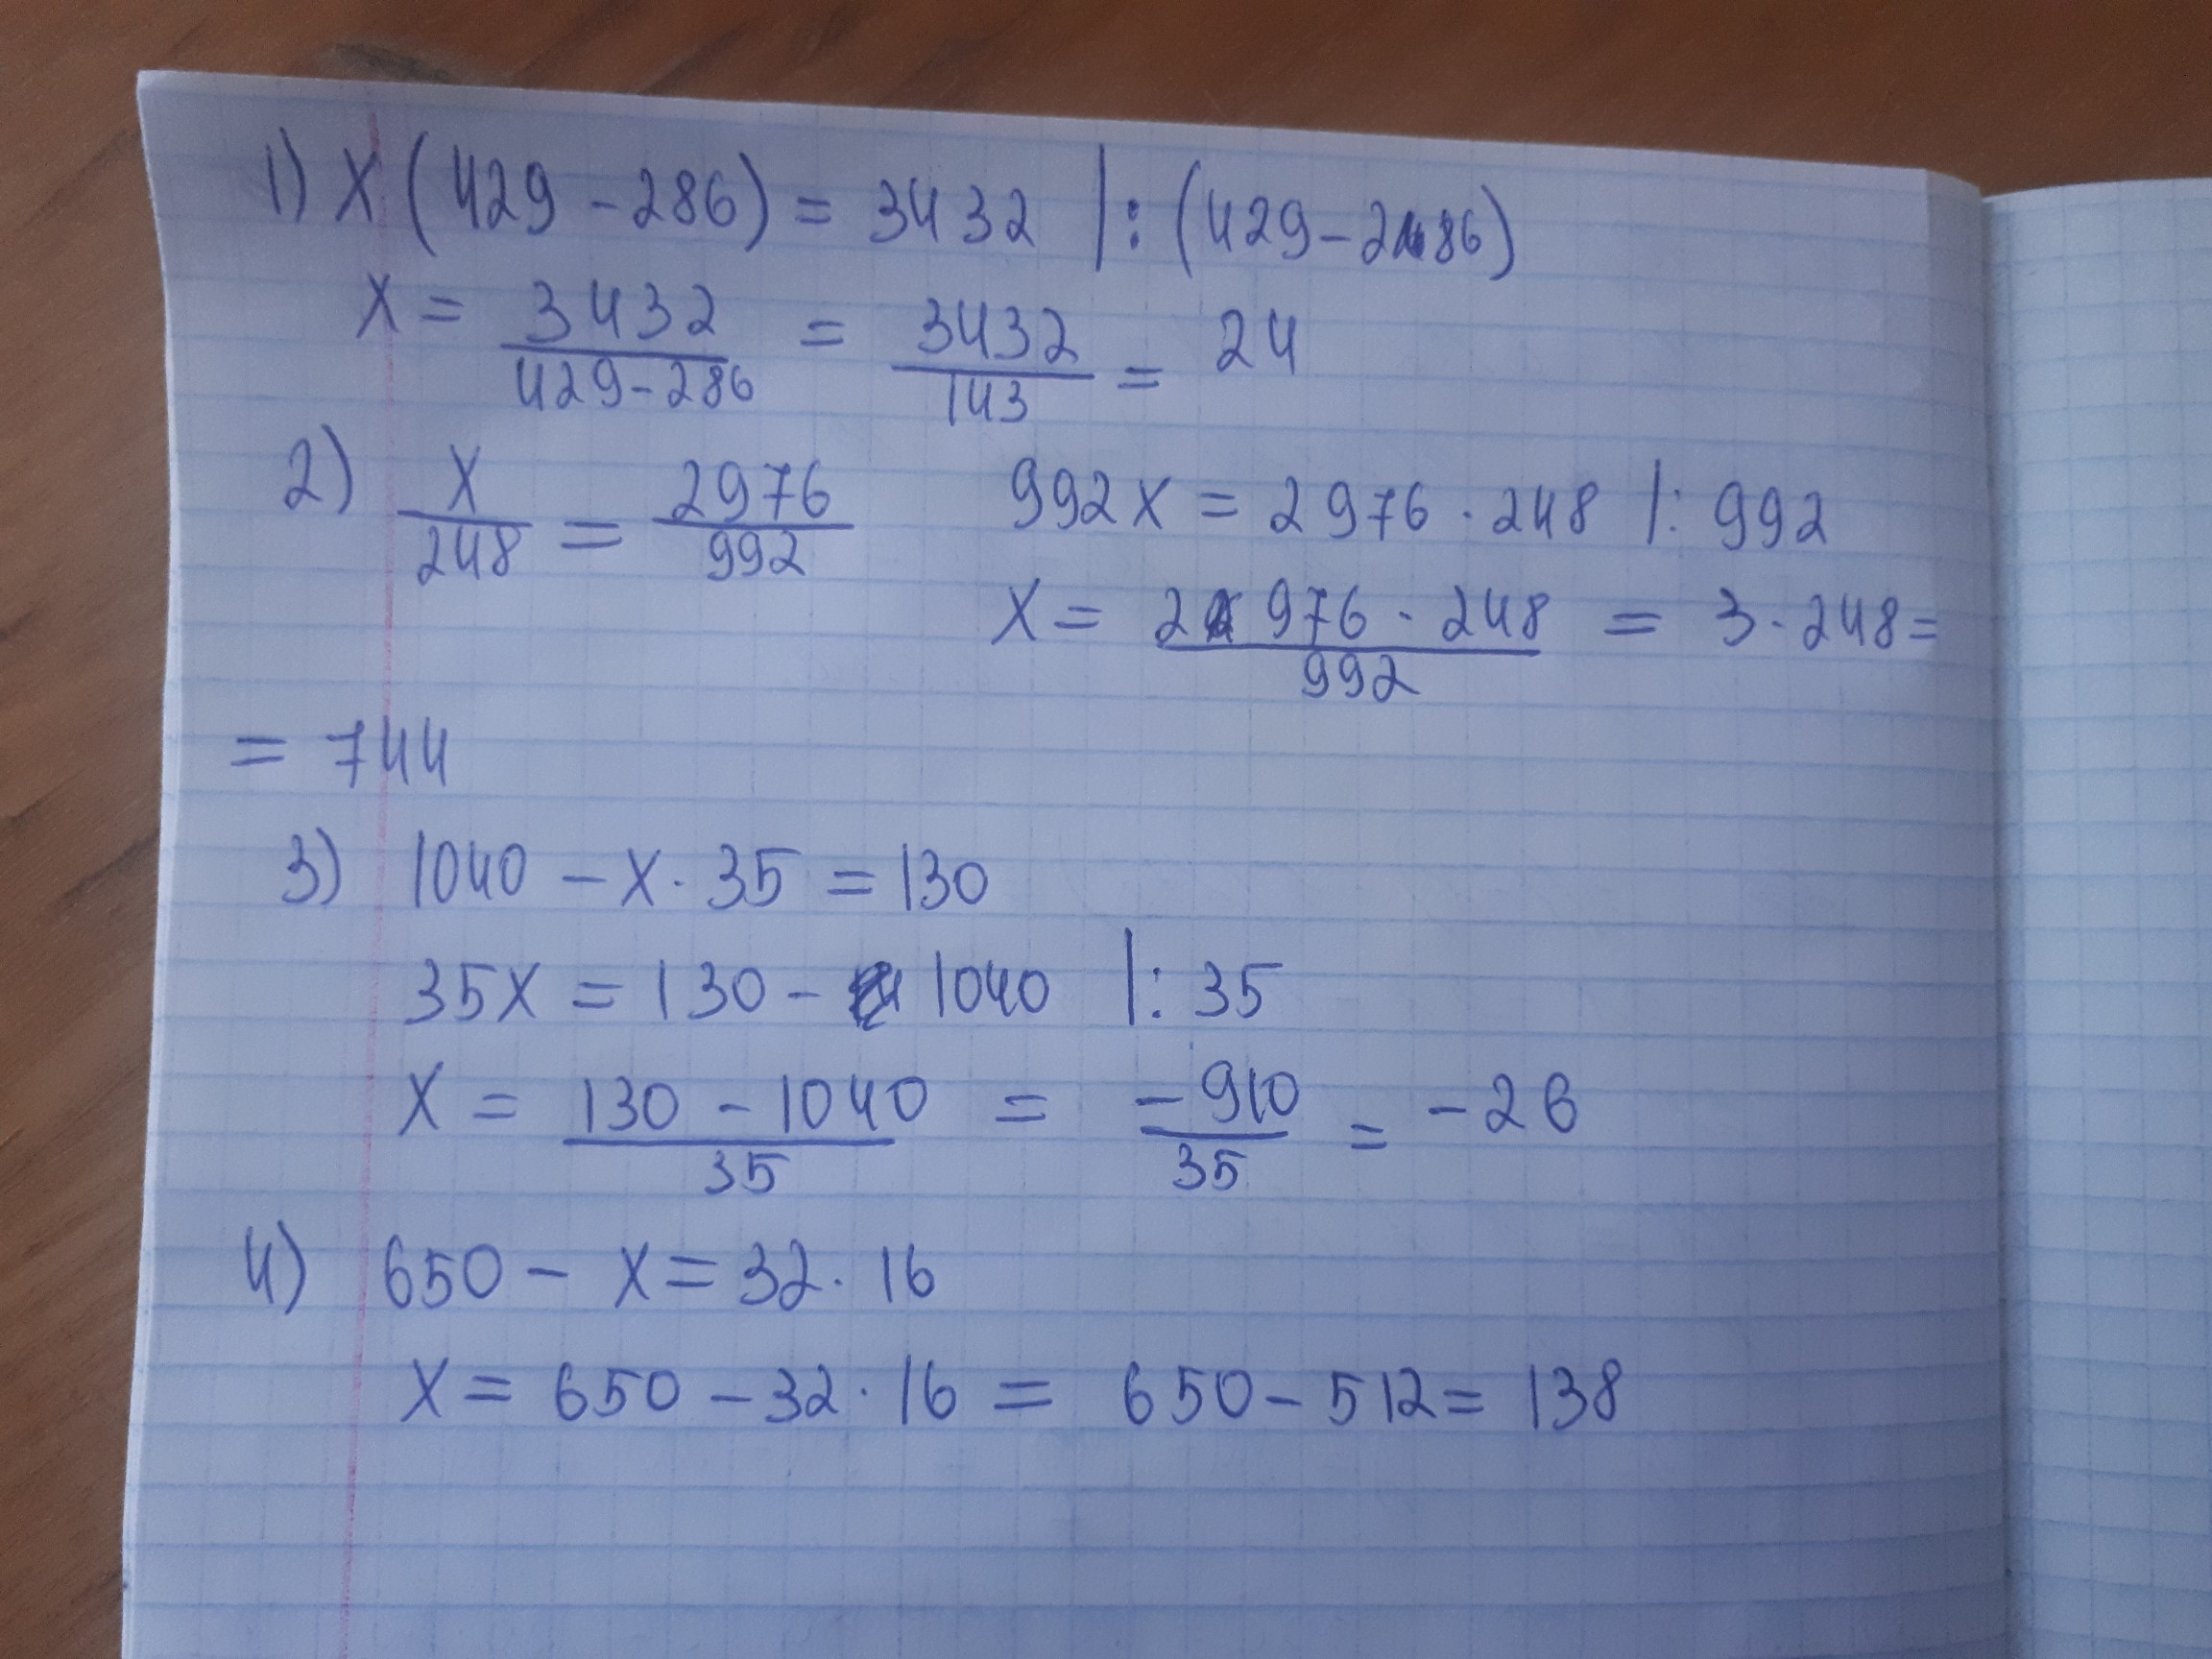 1) x (429 - 286) = 3432 | : (429 - 286)
x = 3432/(429 - 286) = 3432/143 = 24
2) x/248 = 2976/992 992x = 2976 · 248 |: 992
x = (2976 · 248)/992 = 3 · 248 =
= 744
3) 1040 - x · 35 = 130
35x = 130 - 1040 |: 35
x = (130 - 1040)/35 = -910/35 = -26
4) 650 - x = 32 · 16
x = 650 - 32 · 16 = 650 - 512 = 138